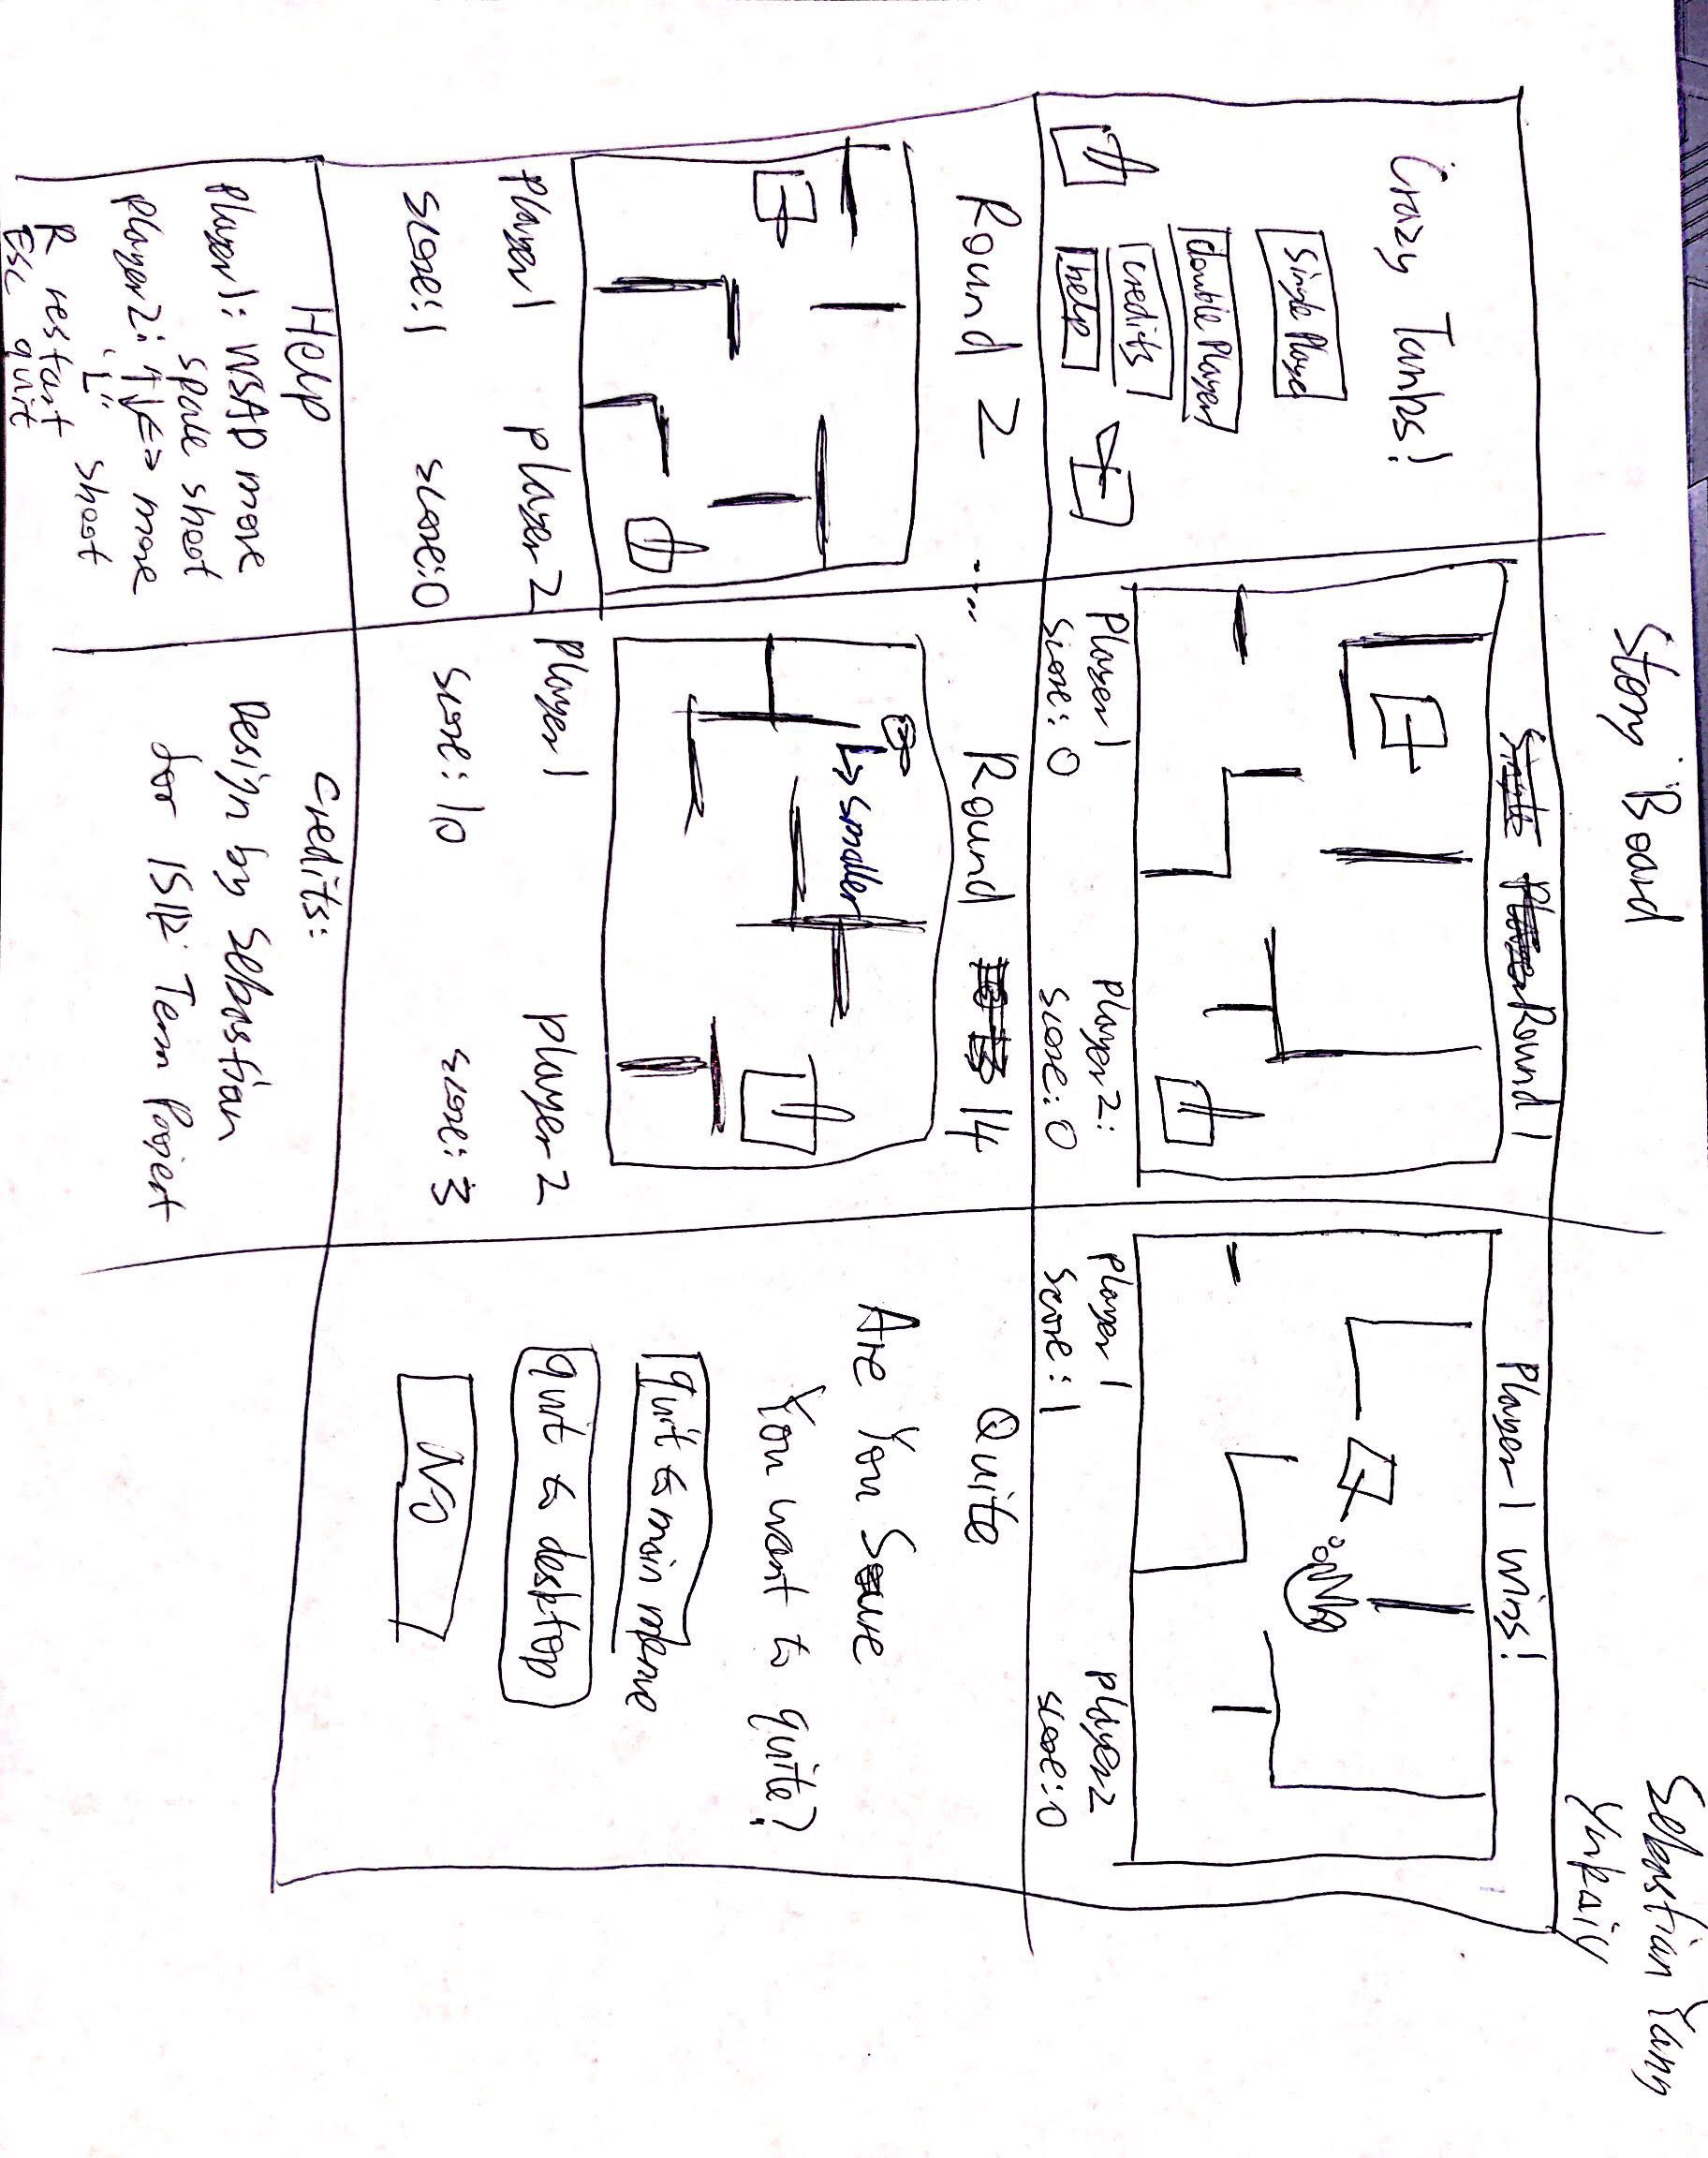 Story Board
Sebastian Yang
Yukaiy
Crazy Tanks!
Single Player
double Player
credits
help
Single Player Round 1
Player 1
Score: 0
Player 2:
Score: 0
Player 1 wins!
Player 1
Score: 1
player 2
score: 0
Round 2 ....
player 1
player 2
score: 1
score: 0
Round 14
smaller
Player 1
player 2
Score: 10
score: 3
Quite
Are You Sure
You want to quite?
quit to main menue
quit to desktop
NO
Help
Player 1: WSAD move
space shoot
Player 2: ↑↓←→ move
"L" shoot
R restart
Esc quit
Credits:
Design by Sebastian
for 15112 Term Project